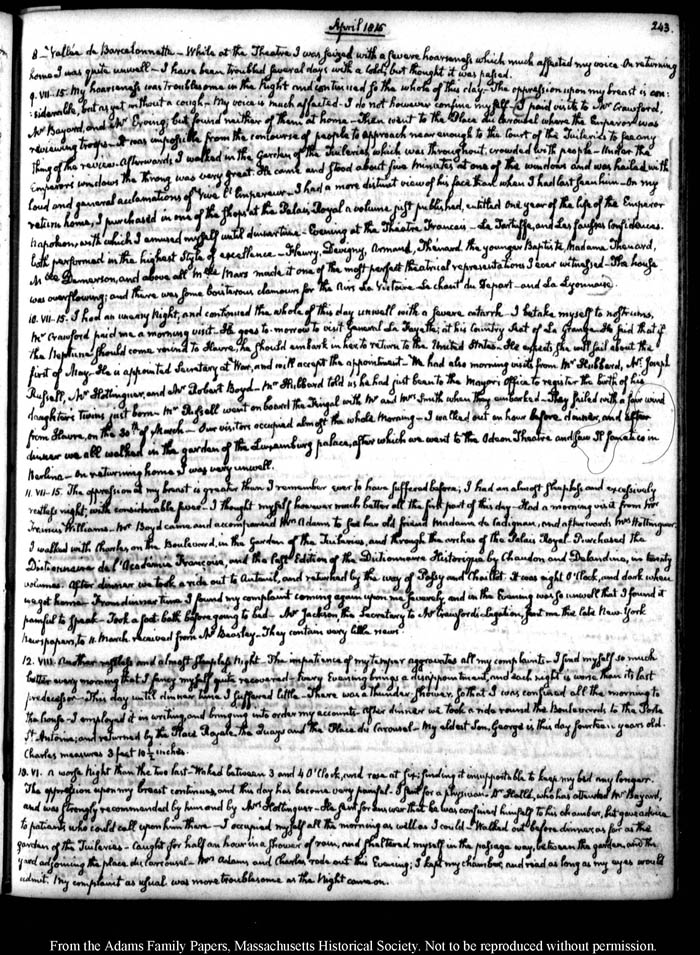 April 1815
243.
8. Vallée de Barcelonnette – While at the Theatre I was seized with a severe hoarseness which much affected my voice. On returning
home I was quite unwell – I have been troubled several days with a cold, but thought it was passed.
9. VII.15. My hoarseness was troublesome in the Night and continued so the whole of this day – The oppression upon my breast is con:
:siderable, but as yet without a cough – My voice is much affected. I do not however confine myself – I paid visits to Mr Crawford,
Mr Bayard, and Mr Erving, but found neither of them at home – Then went to the Place du Carousel where the Emperor was
reviewing troops. It was impossible from the concourse of people to approach near enough to the Court of the Tuileries to see any
thing of the review. Afterwards, I walked in the Garden of the Tuileries which was throughout, crowded with people – Under the
Emperor's windows the throng was very great. He came and stood about five minutes at one of the windows and was hailed with
loud and general acclamations of "Vive l'Empereur" – I had a more distinct view of his face than when I had last seen him – On my
return home, I purchased in one of the shops at the Palais Royal a volume just published, entitled one year of the life of the Emperor
Napoleon, with which I amused myself until dinner time – Evening at the Theatre Francais – Le Tartuffe, and Les fausses Confidences.
both performed in the highest style of excellence – Fleury, Devigny, Armand, Thénard the younger Baptiste Madame Thenard,
Mlle Demerson, and above all Mlle Mars made it one of the most perfect theatrical representations I ever witnessed – The house
was overflowing; and there was some boisterous clamour for the Airs La Victoire Le chant du Depart – and La Lyonnaise.
10. VII.15. I had an uneasy Night, and continued the whole of this day unwell with a severe catarrh – I betake myself to nostrums,
Mr Crawford paid me a morning visit – He goes to-morrow to visit General La Fayette; at his Country Seat of La Grange. He said that if
the Neptune should come round to Havre, he should embark in her to return to the United States – He expects she will sail about the
first of May. He is appointed Secretary at War, and will accept the appointment – We had also morning visits from Mr Hubbard, Mr Joseph
Russell, Mr Hottinguer, and Mr Robert Boyd – Mr Hibbard told us he had just been to the Mayor's Office to register the birth of his
daughters twins just born. Mr Russell went on board the Fingal with Mr and Mrs Smith when they embarked – They sailed with a fair wind
from Havre, on the 30th of March – Our visitors occupied almost the whole Morning – I walked out an hour before dinner, and after
dinner we all walked in the garden of the Luxemburg palace, after which we went to the Odeon Theatre and saw Il fanatico in
Berlina – On returning home I was very unwell.
11. VII.15. The oppression at my breast is greater than I remember ever to have suffered before; I had an almost sleepless and excessively
restless night; with considerable fever – I thought myself however much better all the first part of this day – Had a morning visit from Mr
Williams. Mr Boyd came and accompanied Mrs Adams to see her old friend Madame de and afterwards Mrs Hottinguer.
I walked with Charles on the Boulevard, in the Garden of the Tuileries, and through the arches of the Palais Royal. Purchased the
Dictionnaire de l'Academie Francoise, and the last Edition of the Dictionnaire Historique by Chaudon and Delandine, in twenty
volumes. After dinner we took a ride out to Auteuil, and returned by the way of Passy and Chaillot. It was eight O'Clock, and dark when
we got home – From dinner time I found my complaint coming again upon me severely and in the Evening was so unwell that I found it
painful to speak – Took a foot bath before going to bed – Mr Jackson the Secretary to Mr Crawford's Legation, sent me the late New-York
Newspapers, to 11 March received from Mr Beasley. They contain very little news.
12. VIII. Another restless and almost sleepless Night – The impatience of my temper aggravates all my complaints – I find myself so much
better every morning that I fancy myself quite recovered – Every Evening brings a disappointment, and each night is worse than its last
predecessor – This day until dinner time I suffered little – There was a thunder shower, so that I was confined all the morning to
the house – I employed it in writing, and bringing into order my accounts. After dinner we took a ride round the Boulevards to the Porte
St Antoine; and returned by the Place Royale, the Quays and the Place du Carousel – My eldest Son, George is this day fourteen years old.
Charles measures 3 feet 10 1/2 inches.
13. VI. A worse Night than the two last – Waked between 3 and 4 O'Clock, and rose at six; finding it insupportable to keep my bed any longer.
The oppression upon my breast continues, and this day has become very painful. I sent for a physician – Dr Hallé, who has attended Mr Bayard,
and was strongly recommended by him and by Mrs Hottinguer – He sent for answer that he was confined himself to his chamber, but gave advice
to patients who could call upon him there – I occupied myself all the morning as well as I could – Walked out before dinner as far as the
garden of the Tuileries – Caught for half an hour in a shower of rain; and sheltered myself in the passage way, between the garden, and the
yard adjoining the place du Carrousel – Mrs Adams and Charles, rode out this Evening; I kept my chamber, and read as long as my eyes would
admit. My complaint as usual was more troublesome as the Night came on.
From the Adams Family Papers, Massachusetts Historical Society. Not to be reproduced without permission.